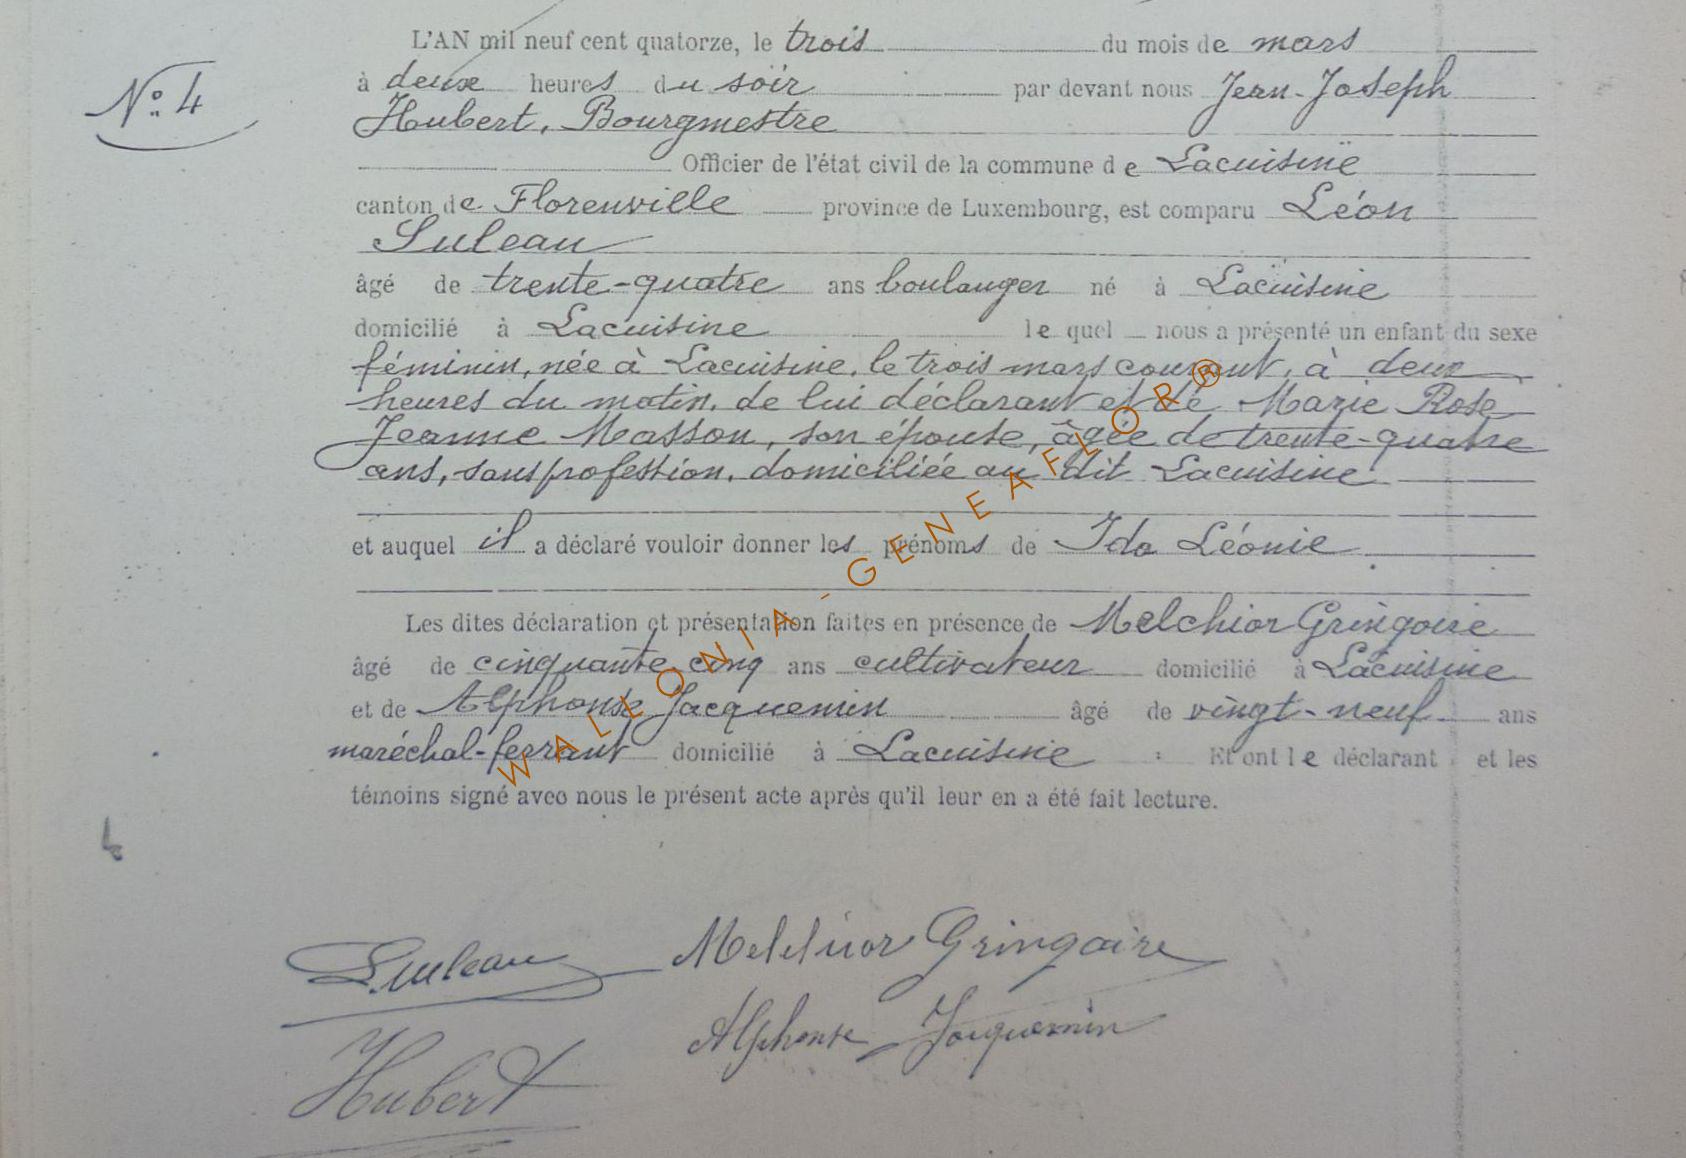 L'AN mil neuf cent quatorze, le trois du mois de mars
N° 4
à deux heures du soir par devant nous Jean-Joseph
Hubert, Bourgmestre
Officier de l'état civil de la commune de Lacuisine
canton de Florenville province de Luxembourg, est comparu Léon
Suleau
âgé de trente-quatre ans boulanger né à Lacuisine
domicilié à Lacuisine le quel nous a présenté un enfant du sexe
féminin, née à Lacuisine, le trois mars courant, à deux
heures du matin, de lui déclarant et de Marie Rose
Jeanne Masson, son épouse, âgée de trente-quatre
ans, sans profession, domiciliée au dit Lacuisine
et auquel il a déclaré vouloir donner les prénoms de Ida Léonie
Les dites déclaration et présentation faites en présence de Melchior Gringoire
âgé de cinquante cinq ans cultivateur domicilié à Lacuisine
et de Alphonse Jacquemin âgé de vingt-neuf ans
maréchal-ferrant domicilié à Lacuisine : Et ont le déclarant et les
témoins signé avec nous le présent acte après qu'il leur en a été fait lecture.
WALLONIA-GENEAFLOR®
L. Suleau Melchior Gringoire
Alphonse Jacquemin
Hubert